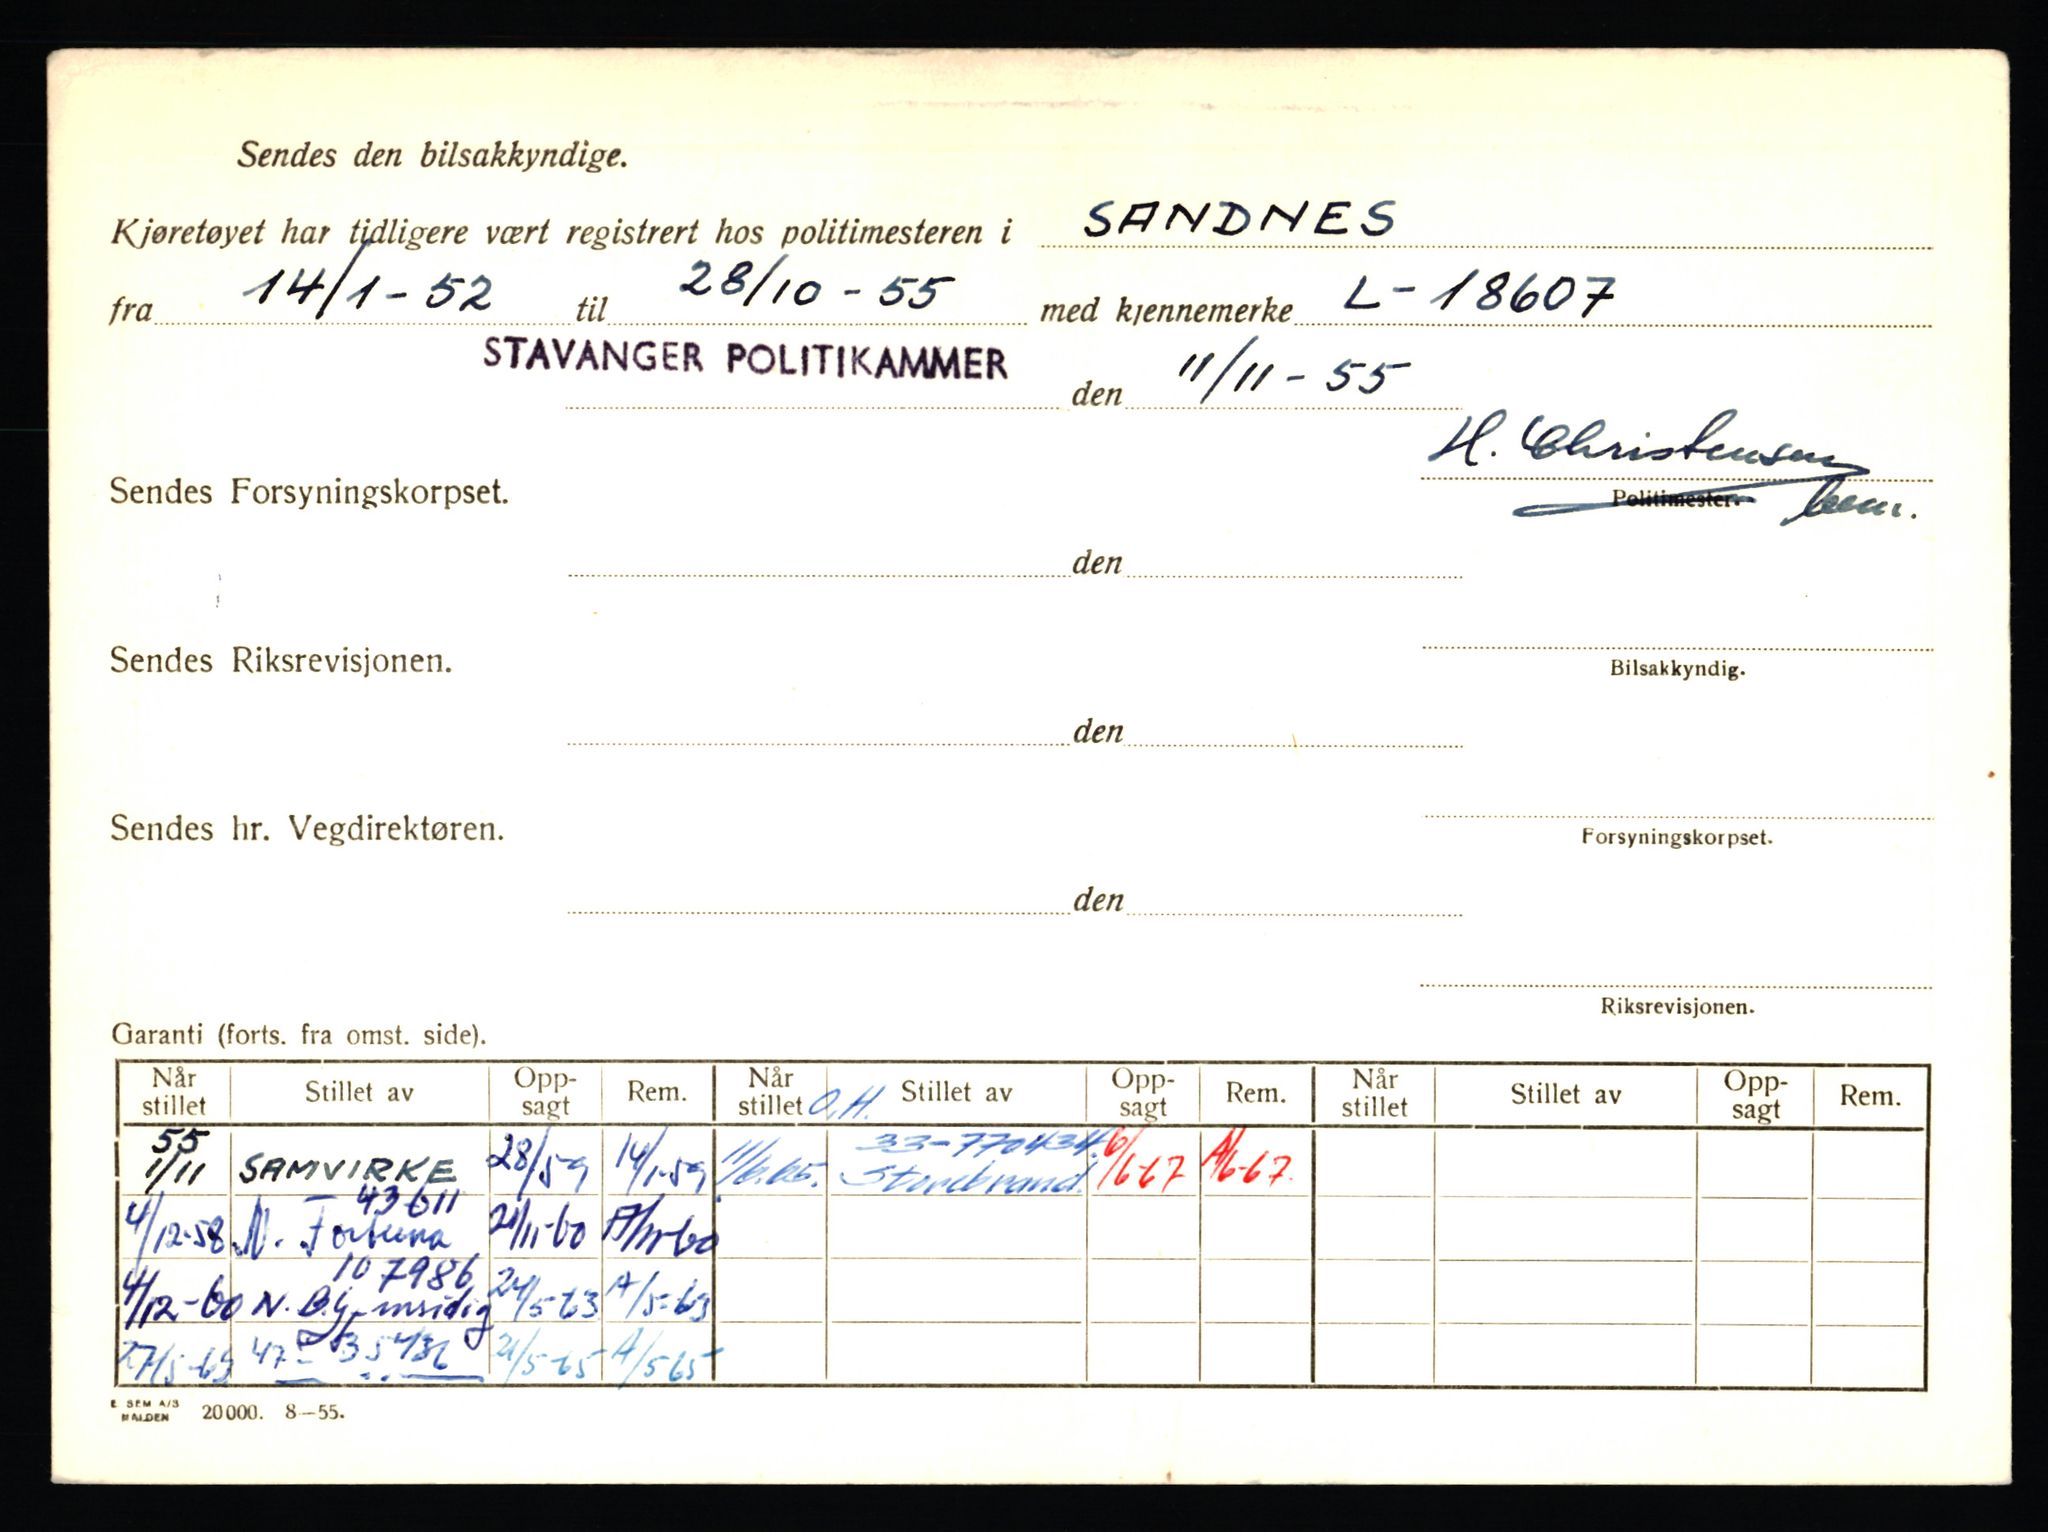 Sendes den bilsakkyndige.
Kjøretøyet har tidligere vært registrert hos politimesteren i SANDNES
fra 14/1-52 til 28/10-55 med kjennemerke L-18607
STAVANGER POLITIKAMMER den 11/11-55
H. Christensen
Sendes Forsyningskorpset.
Politimester.
den
Sendes Riksrevisjonen.
Bilsakkyndig.
den
Sendes hr. Vegdirektøren.
Forsyningskorpset.
den
Riksrevisjonen.
Garanti (forts. fra omst. side).
Når stillet Stillet av Opp- sagt Rem. Når stillet O.H. Stillet av Opp- sagt Rem. Når stillet Stillet av Opp- sagt Rem.
55 33-770434.
1/11 SAMVIRKE 28/5-59 14/1-59 11/6.65. Storebrand. 6/6-67 A/6-67.
43611
4/12-58 N. Fortuna 21/11-60
107986
4/12-60 N. B. Gjensidig 24/5-63 A/5-63
27/5-63 21/5-65 A/5 65
E SEM A/S
HALDEN 20000. 8—55.